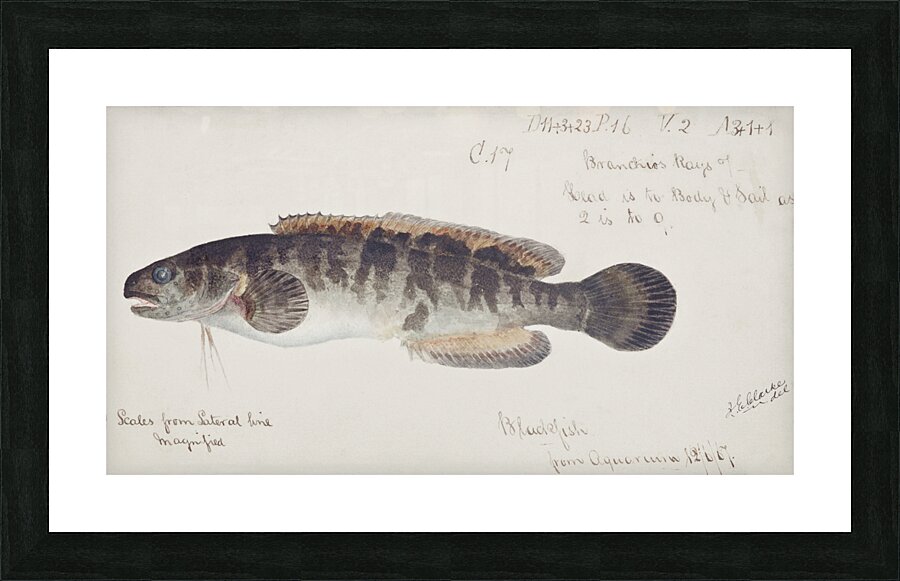 D11+3+23 P.16 V.2 A3+1+1
C.17
Branchios Rays of
Head is to Body & Tail as
2 is to 9.
Scales from Lateral line
Magnified
Blackfish
from Aquarium
F.E. Clarke
del